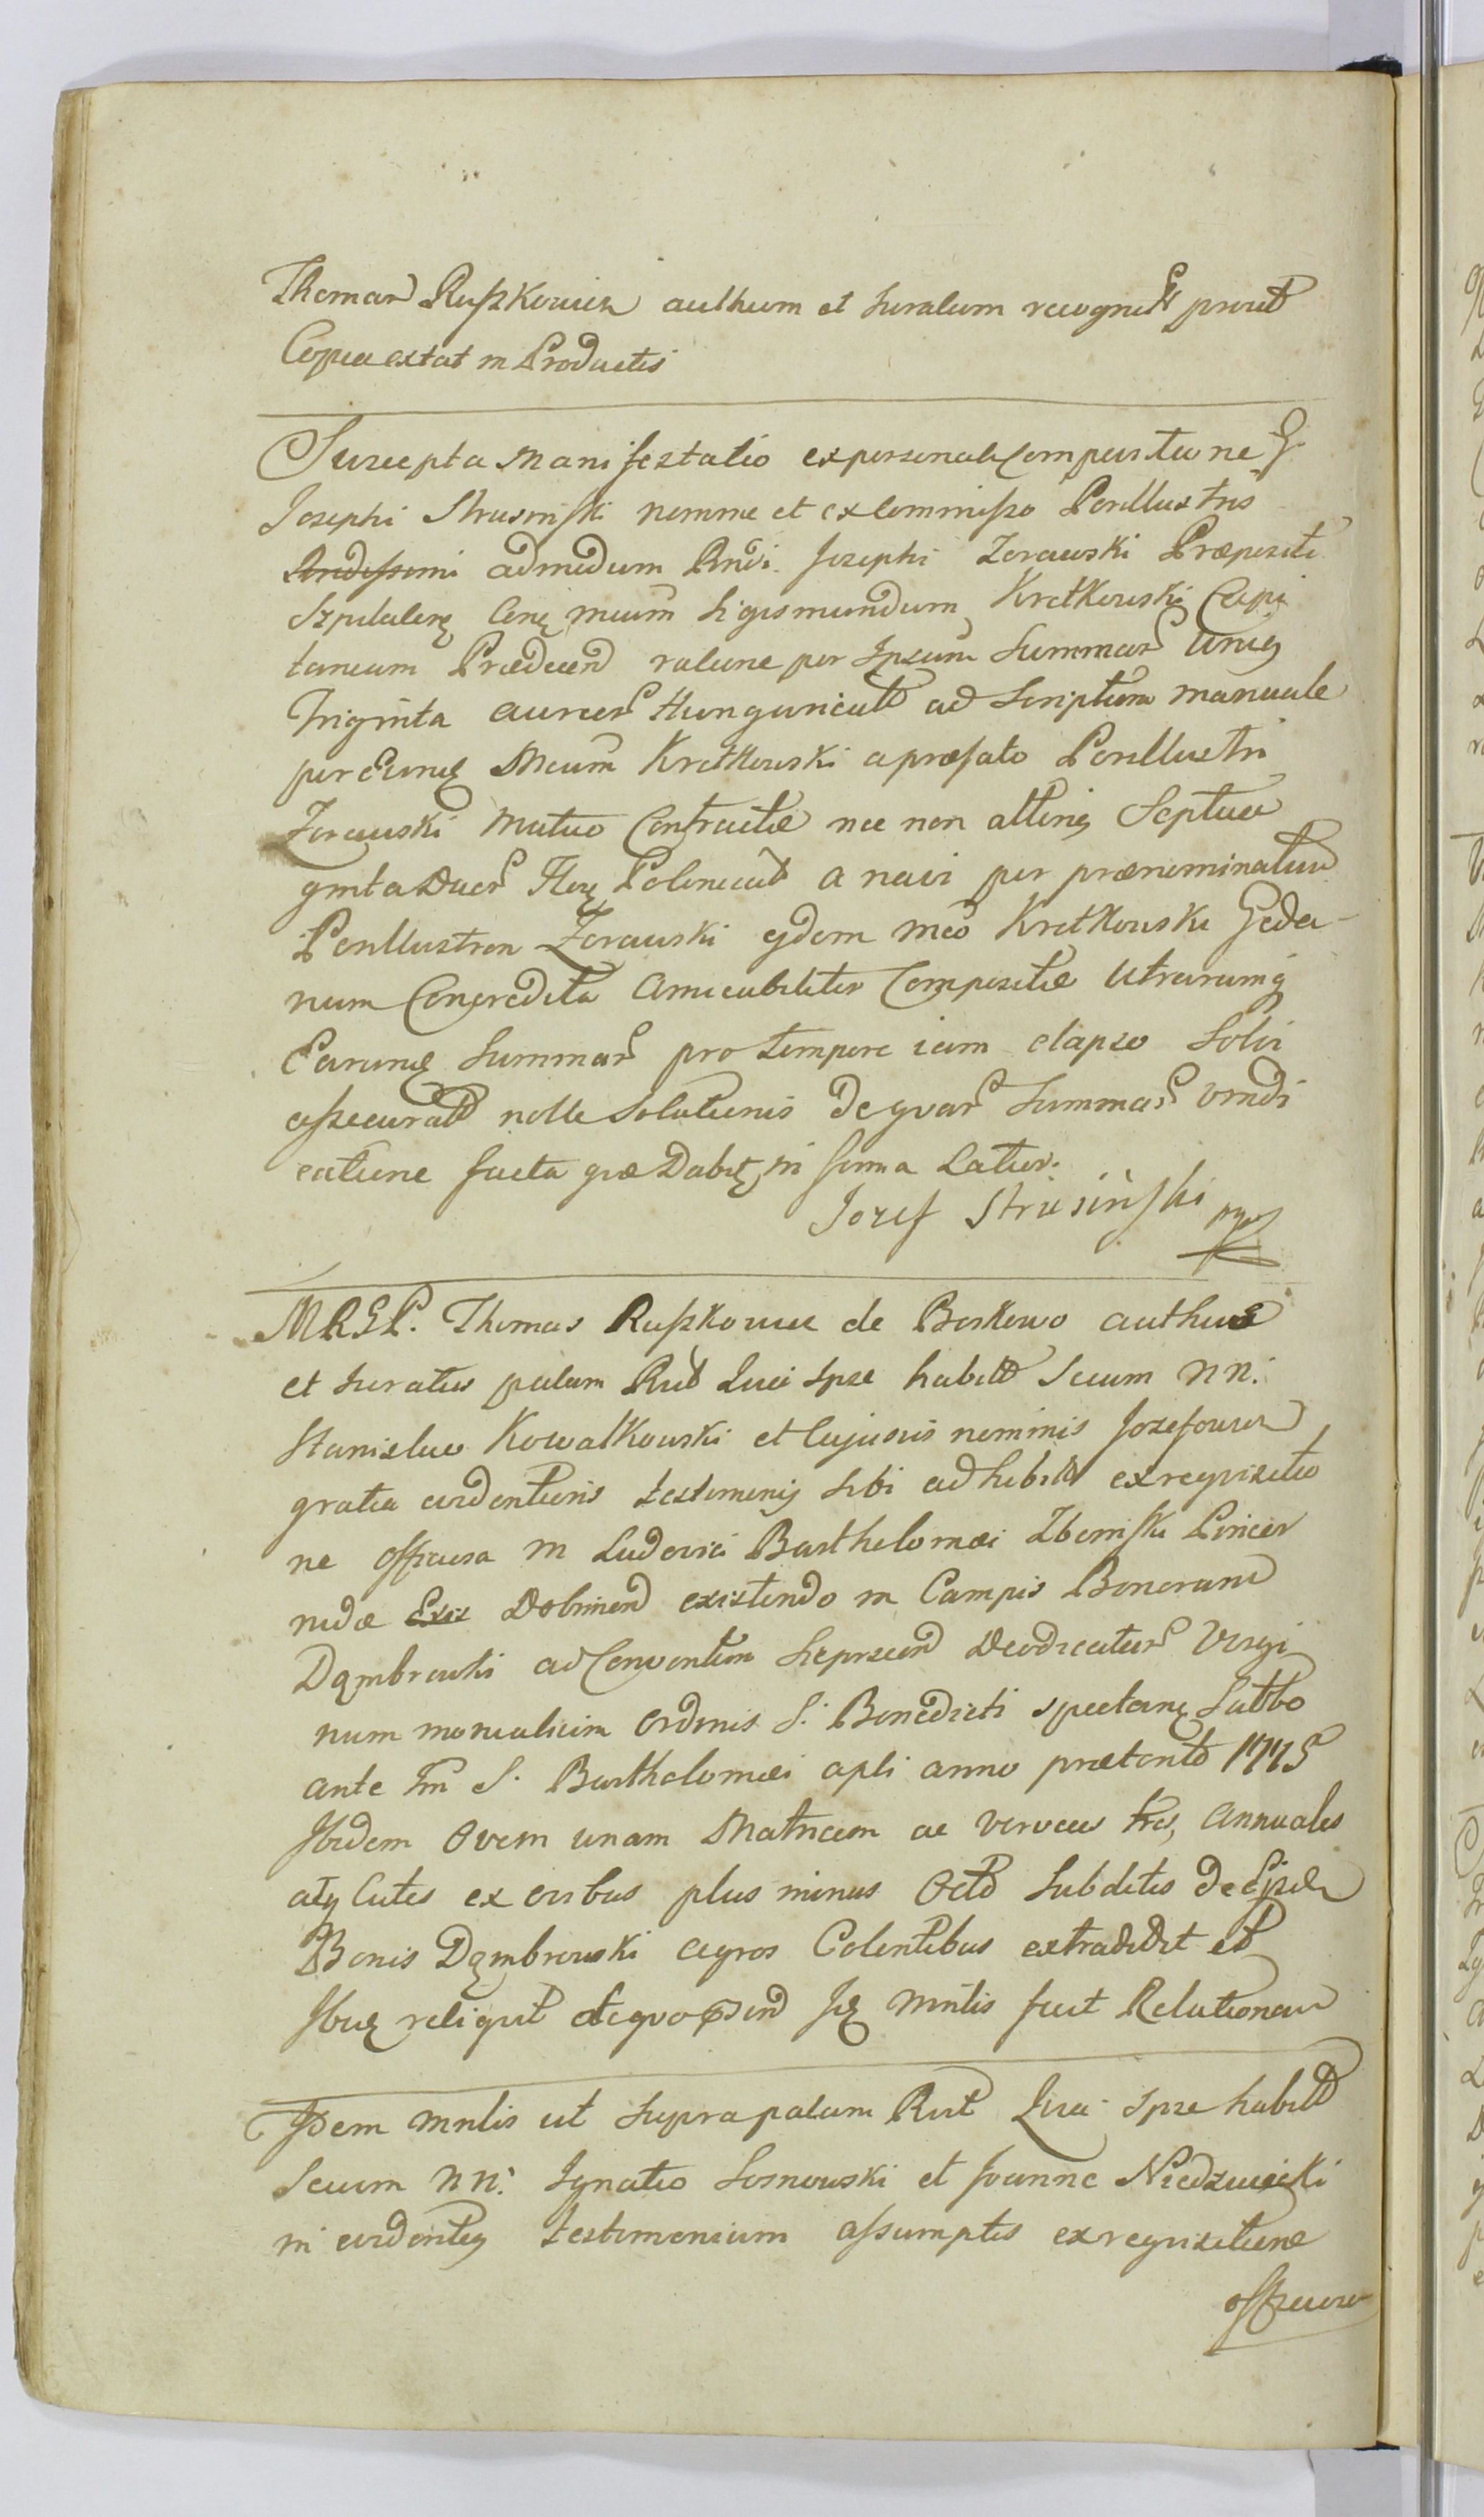 Thomas Ruszkowicz authum et Juratum recognit prout
Copia extat in Productis
Suscepta Manifestatio ex personali Comparitione G.
Josephi Strusinski nomine et ex Commisso Perillustris
admodum Rndi. Josephi Zorawski Præpositi
Szpitalen Cont mcum Sigismundum Kretkowski Capi
taneum Prædecen ratione per Ipsum Summar Unius
Triginta aureor Hungaricalt ad Scriptum manuale
per Eund Mcum Kretkowski a præfato Perillustri
Zorawski Mutuo Contractæ nec non alterius Septua
ginta Duor Flor Polonicalt a navi per prænominatum
Perillustrem Zorawski eidem Mco Kretkowski Geda-
num Concredita Amicabiliter Compositæ Utrarumq
Earund Summar pro tempore iam elapso Solvi
assecurat nolle Solutionis De quar Summar vindi
catione facta quæ Dabit in forma Latior.
Jozef Strusinski mp
MRGP. Thomas Ruszkowicz de Borkowo authus
et Juratus palam Rut Quia Ipse habitt Secum NN.
Stanislao Kowalkowski et Cujusvis nominis Jozefowicz
gratia evidentioris testimonij Sibi adhibitt ex requisitio
ne officiosa M Ludovici Barthelomæi Zboinski Pincer
nidæ Dobrinen existendo in Campis Bonorum
Dąmbrowki ad Conventum Sieprscen Deodicatar Virgi
num monialium Ordinis S. Benedicti spectan Sabbo
ante Fm S. Bartholomæi apli anno prætent 1775
Ibidem Ovem unam Matricem ac Verveces tres, Annuales
atq Cutes ex ovibus plus minus Octo Subditis De Ejsd
Bonis Dąmbrowki agros Colentibus extradidit et
Ibid reliquit de quo Id Mnlis fecit Relationem
Idem mnlis ut Supra palam Rut Quia Ipse habitt
Secum NN. Ignatio Sosnowski et Joanne Niedzwiecki
in evidentius testimonium assumptis ex requisitione
officiosa